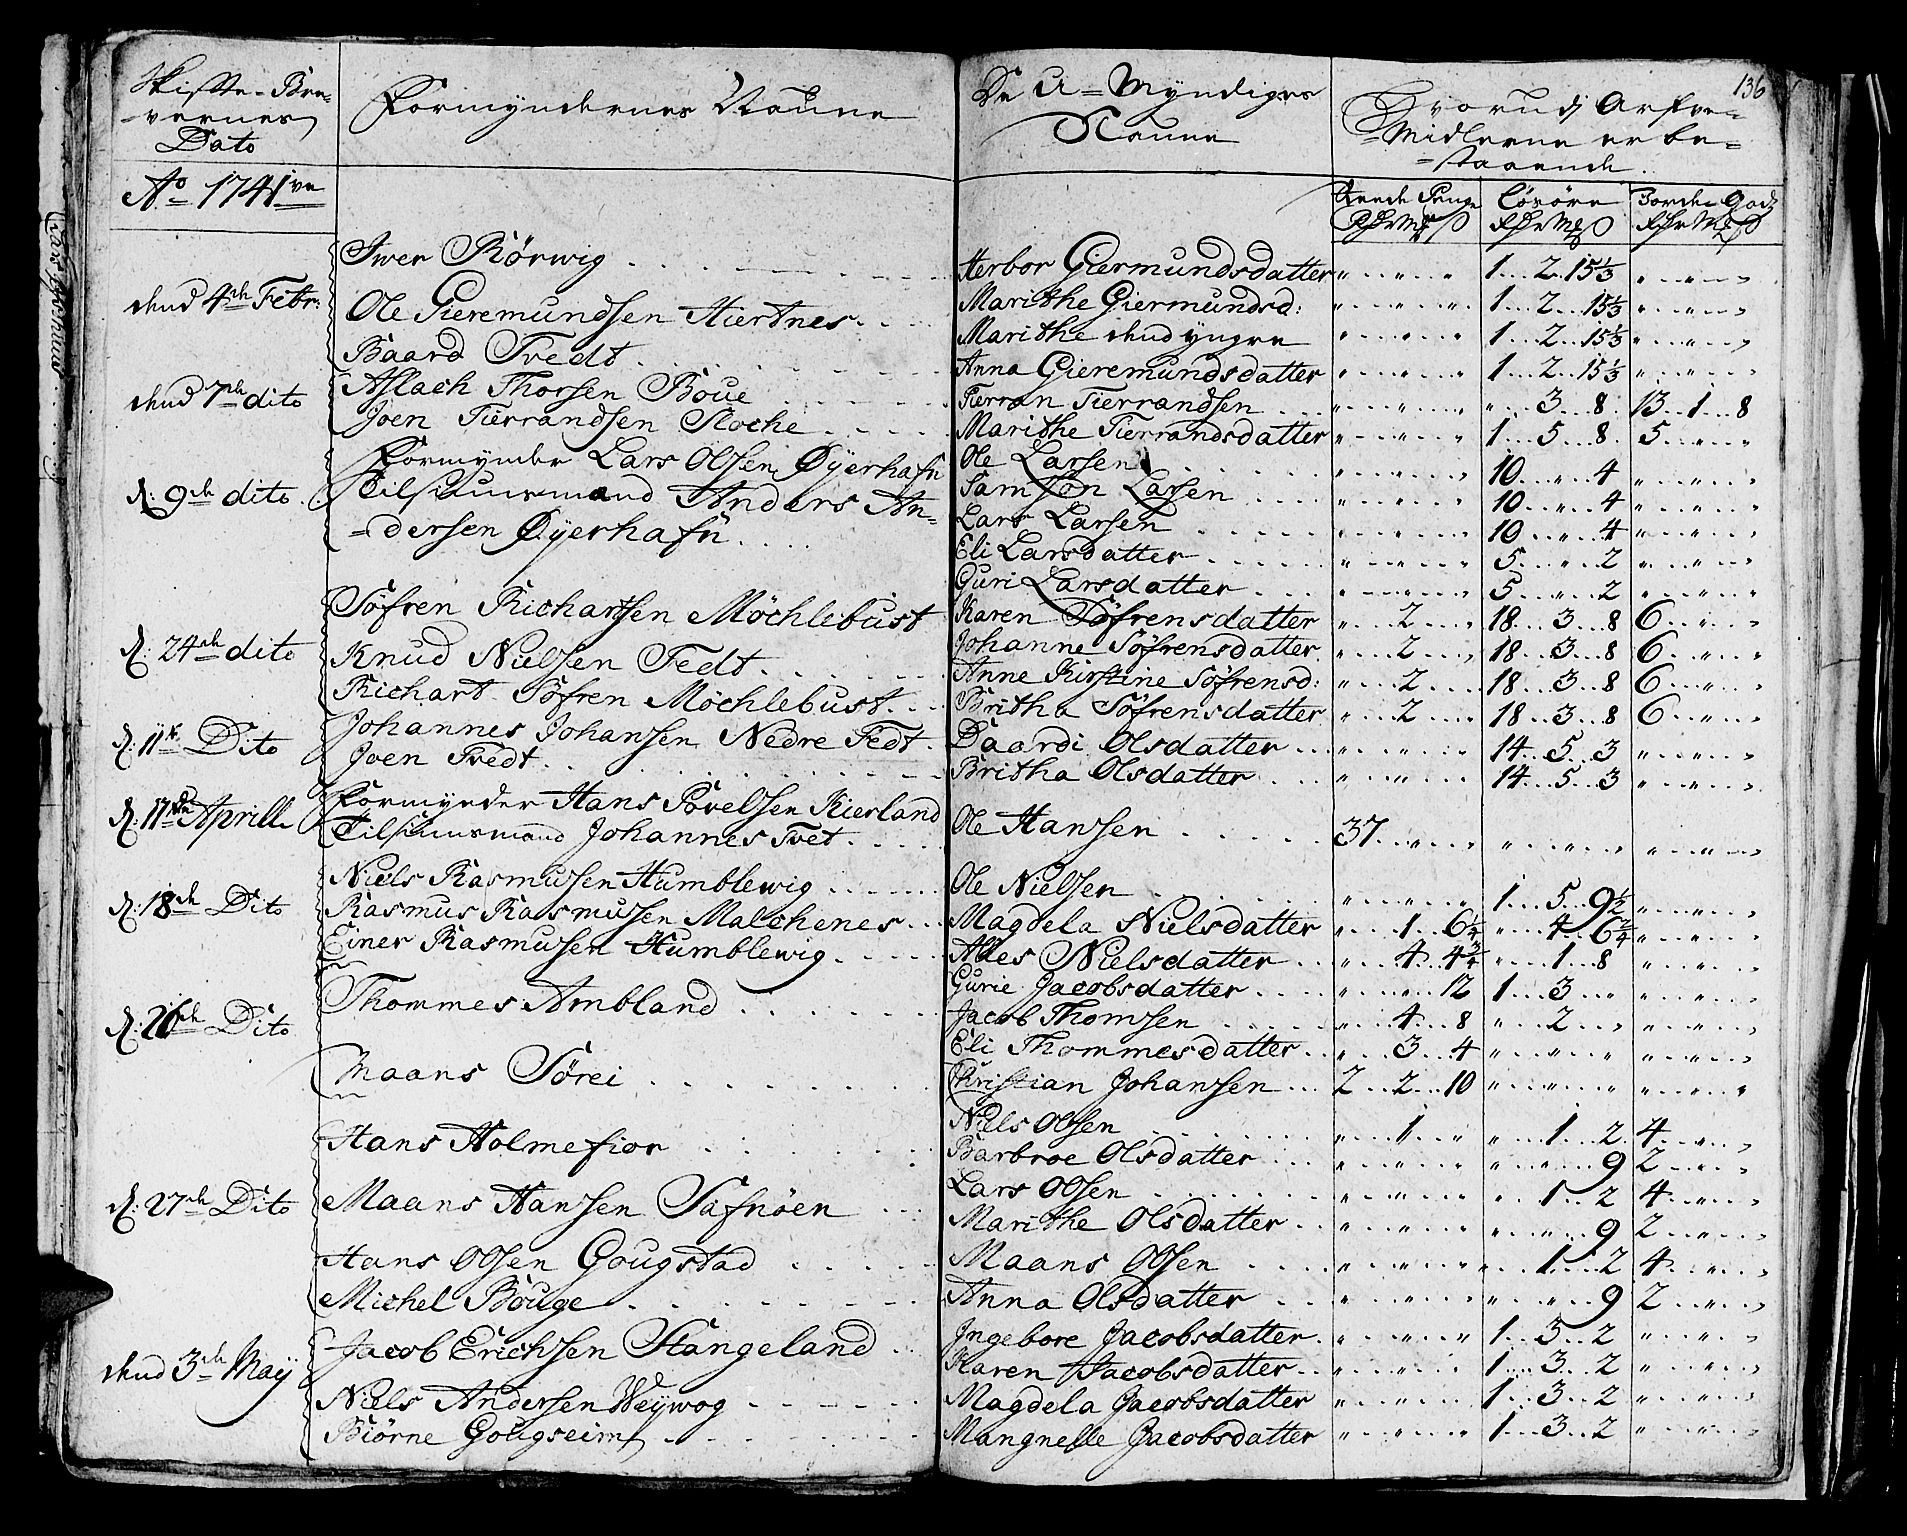 Skifte-Bre-
vernes
Dato
Formyndernes Naune
De U-Myndiges
Naune
136
Hvorudj Arfve-
Midlerne er be-
staaende
Ao 1741ve
Reede Penge
Rdr Mk ß
Løsøre
Rdr Mk ß
Jorde-Godz
Rdr Mk ß
dend 4de Febr:
Iwer Rörwig
Ole Gieremundsen Hiertnes
Baard Tvedt
dend 7de dito
Aslach Thorsen Boue
Joen Tierrandsen Floche
d: 9de dito
Formynder Lars Olsen Øyerhafn
Tilsiunsmand Anders An-
dersen Øyerhafn
d: 24de dito
Söfren Richartsen Möchlebust
Knud Nielsen Tedt
Richart Söfren Möchlebust
d: 11te Dito
Johannes Johansen Nedre Tedt
Joen Tvedt
d: 17de Aprill
Formynder Hans Povelsen Kierland
Tilsiunsmand Johannes Tvet
d: 18de Dito
Niels Rasmusen Humblewig
Rasmus Rasmusen Malchenes
Einer Rasmusen Humblewig
d: 26de Dito
Thommes Ambland
Maans Sörei
Hans Holmefior
d: 27de Dito
Maans Hansen Safnöen
Hans Olsen Gougstad
Michel Bouge
dend 3de May
Jacob Erichsen Stangeland
Niels Andersen Weywog
Biörne Gougseim
Herbor Giermundsdatter " " " 1 2 15 1/3 " " "
Marithe Giermundsd: " " " 1 2 15 1/3 " " "
Marithe dend yngre " " " 1 2 15 1/3 " " "
Anna Gieremundsdatter " " " 1 2 15 1/3 " " "
Tierran Tierrandsen " " " " 3 8 13 1 8
Marithe Tierrandsdatter " " " 1 5 8 5 " "
Ole Larsen " " " 10 " 4 " " "
Samson Larsen " " " 10 " 4 " " "
Lars Larsen " " " 10 " 4 " " "
Eli Larsdatter " " " 5 " 2 " " "
Guri Larsdatter " " " 5 " 2 " " "
Karen Söfrensdatter " 2 " 18 3 8 6 " "
Johanne Söfrensdatter " 2 " 18 3 8 6 " "
Anne Kirstine Söfrensd: " 2 " 18 3 8 6 " "
Britha Söfrensdatter " 2 " 18 3 8 6 " "
Baardi Olsdatter " " " 14 5 3 " " "
Britha Olsdatter " " " 14 5 3 " " "
Ole Hansen 37 " " " " " " " "
Ole Nielsen " " " 1 5 9 1/2 " " "
Magdela Nielsdatter " 1 6 1/4 " 4 6 3/4 " " "
Alles Nielsdatter " 4 4 3/4 " 1 8 " " "
Gurie Jacobsdatter " " 12 1 3 " " " "
Jacob Thomsen " 4 8 " 2 " " " "
Eli Thommesdatter " 3 4 " " " " " "
Christian Johansen 2 2 10 " " " " " "
Niels Olsen " 1 " " 1 2 4 " "
Barbroe Olsdatter " " " " " 9 2 " "
Lars Olsen " " " " 1 2 4 " "
Marithe Olsdatter " " " " " 9 2 " "
Maans Olsen " " " " 1 2 4 " "
Anna Olsdatter " " " " " 9 2 " "
Ingebore Jacobsdatter " " " 1 3 2 " " "
Karen Jacobsdatter " " " 1 3 2 " " "
Magdela Jacobsdatter " " " 1 3 2 " " "
Mangnelle Jacobsdatter " " " 1 3 2 " " "